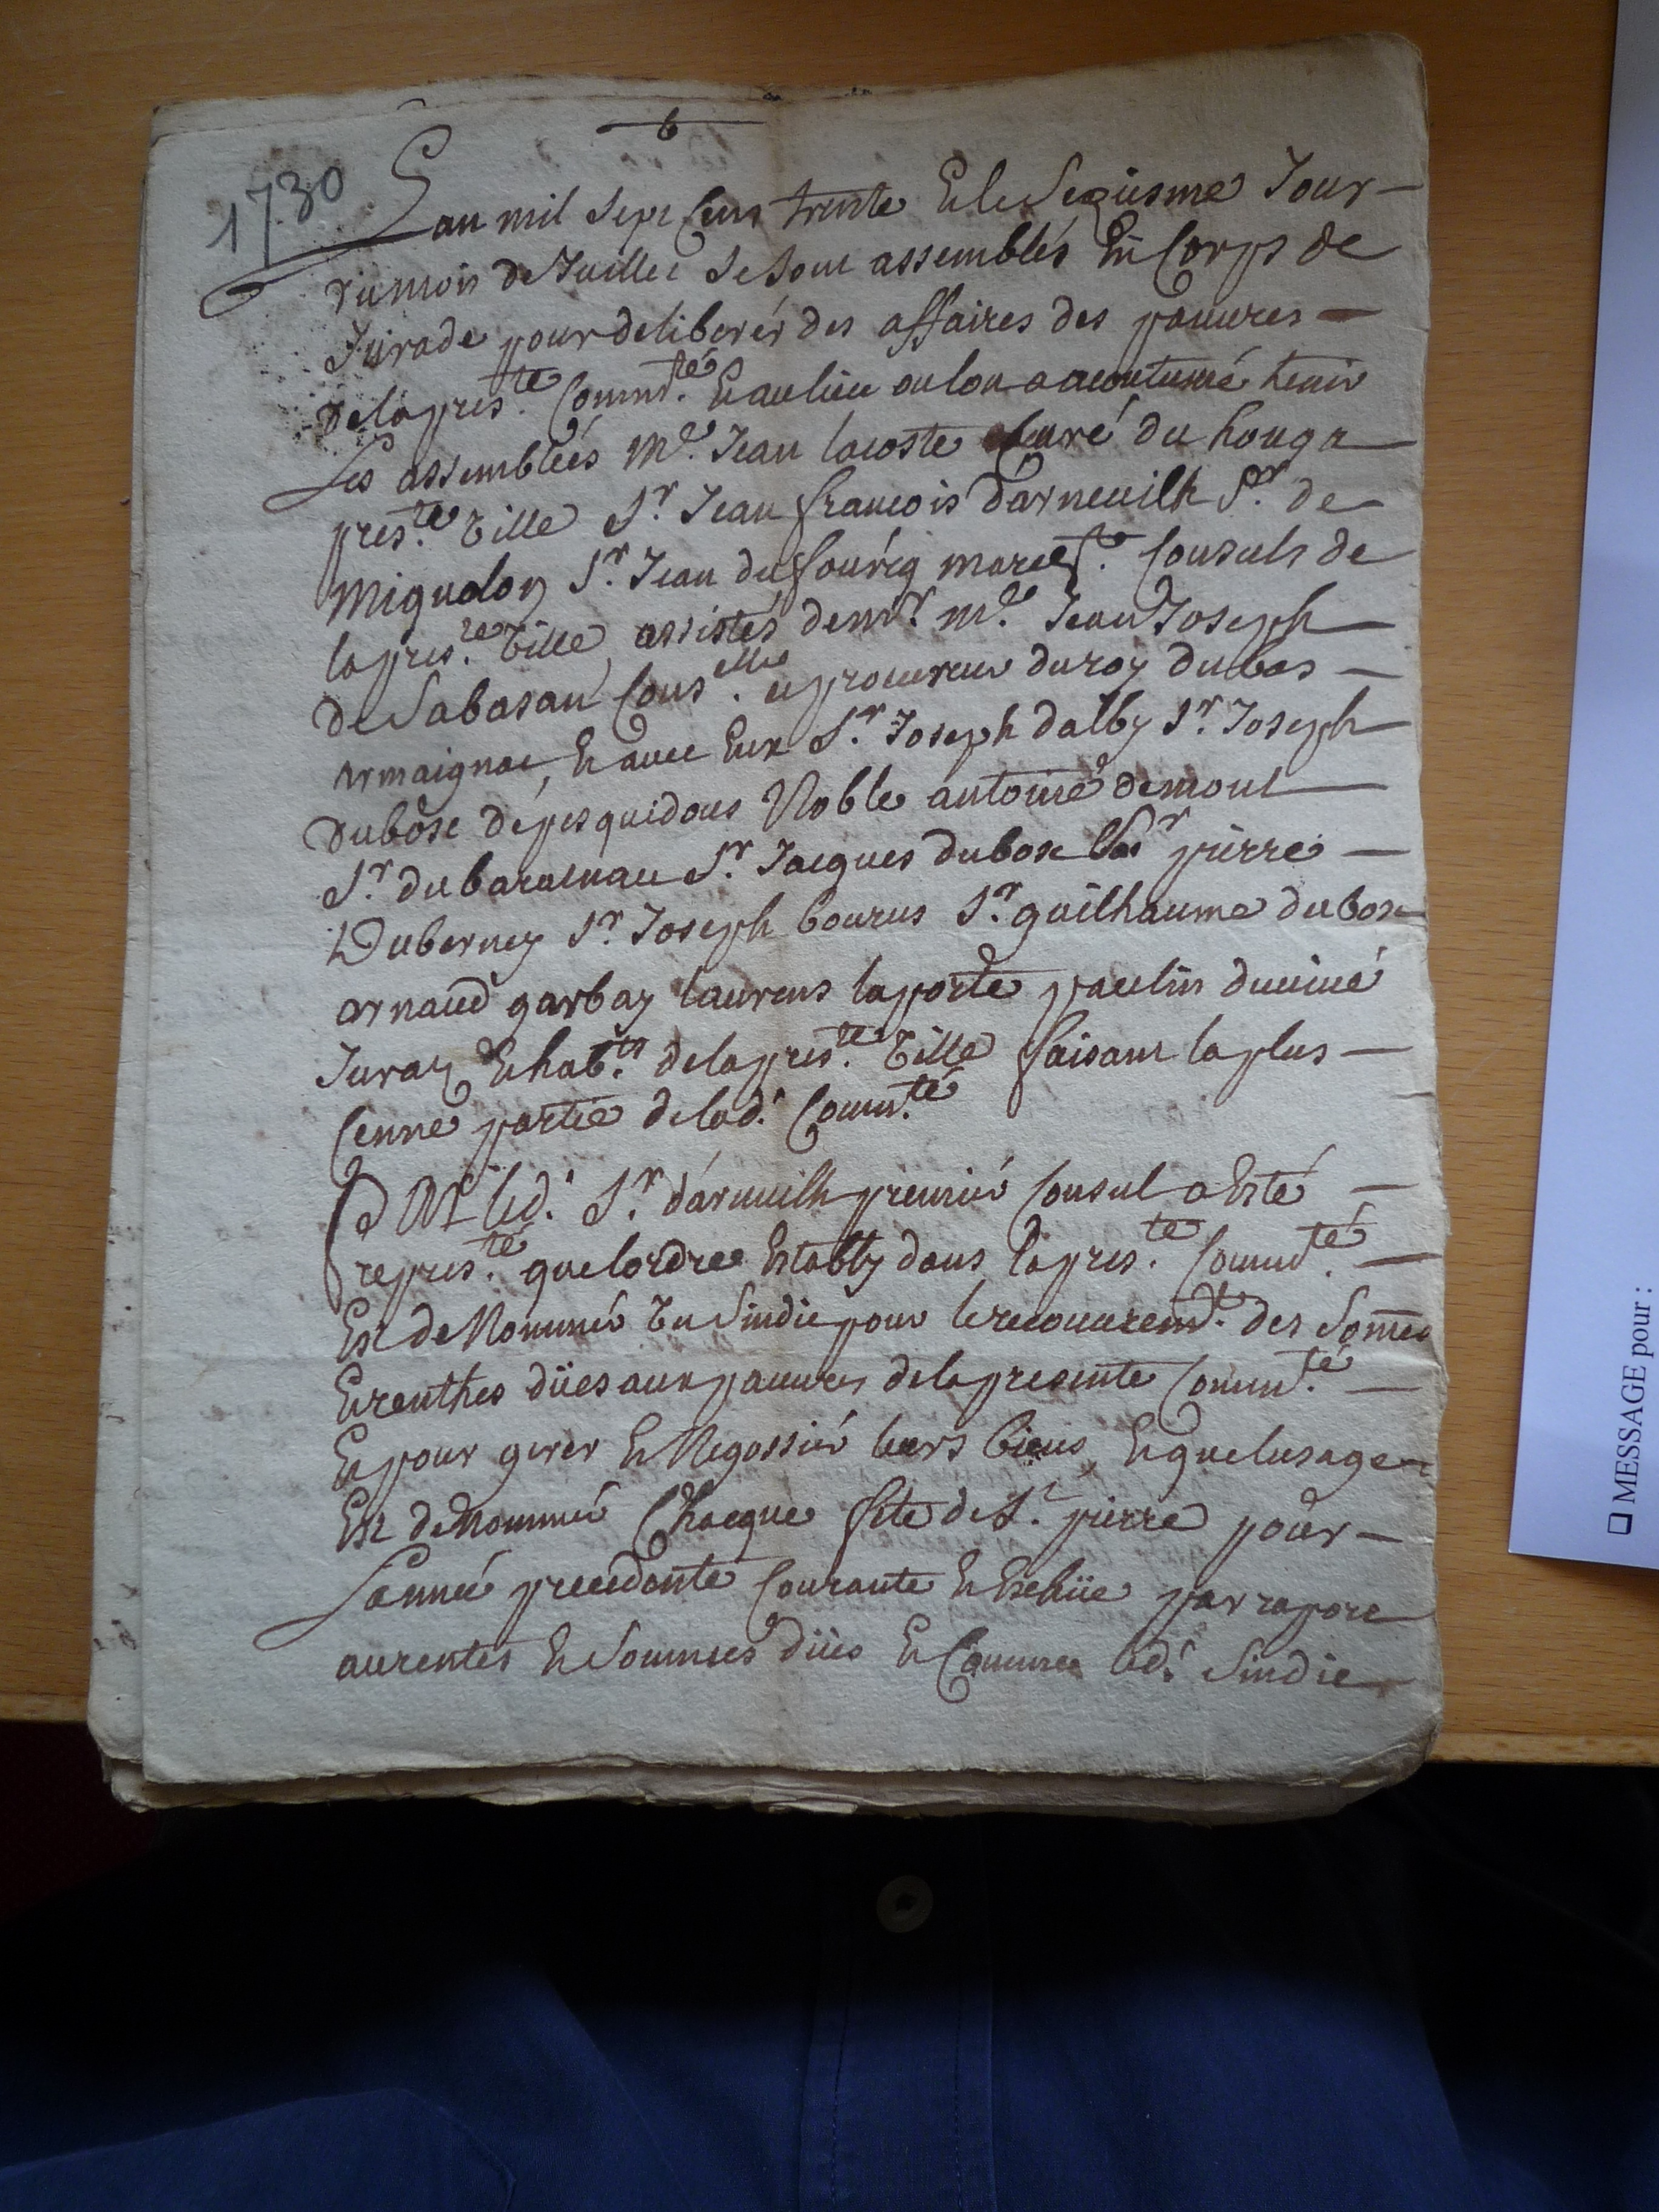 6
1730
Lan mil sept cens trente Et le Sezíesme Jour
du mois de Juillet se sont assemblés En Corps de
Jurade pour deliberér des affaires des pauures
de la pres.te Commt.té Et au lieu ou lon a acoutumé tenir
Les assemblées Me. Jean lacoste curé du houga
pres.te Ville Sr. Jean françois d'arneuilh Sr. de
Miquelon Sr. Jean dufourcq Consuls de
la pres.te Ville, assistés de mr. me. Jean Joseph
de Sabasan Cons.eller et procureur du roy du bas
armaignac, Et avec Eux Sr. Joseph dalby Sr. Joseph
dubosc depesquidous Noble antoine demont
Sr. du baradnau Sr. Jacques dubosc pierre
Duberney Sr. Joseph bourus Sr. guilhaume dubosc
arnaud garbay laurens laporte paulin
Juraz Et hab.ts de la pres.te Ville faisant la plus
Cenne partie de lad.t Comm.té
Par led.t Sr. d'arneuilh premiér Consul a Esté
repres.té que lordre Establÿ dans la pres.te Commt.té
Est de Nommér Vn Sindic pour le recouurem.t des Sommes
Et renthes düies aux pauures de la presente Comm.té
Et pour gerer Et Negossiér leurs biens, Et que lusage
Est de Nommér Chacque fete de St. pierre pour
Lannée precedante Courante Et Echüe par raport
au rentes Et Sommes düies Et Comme led.t Sindic
MESSAGE pour :